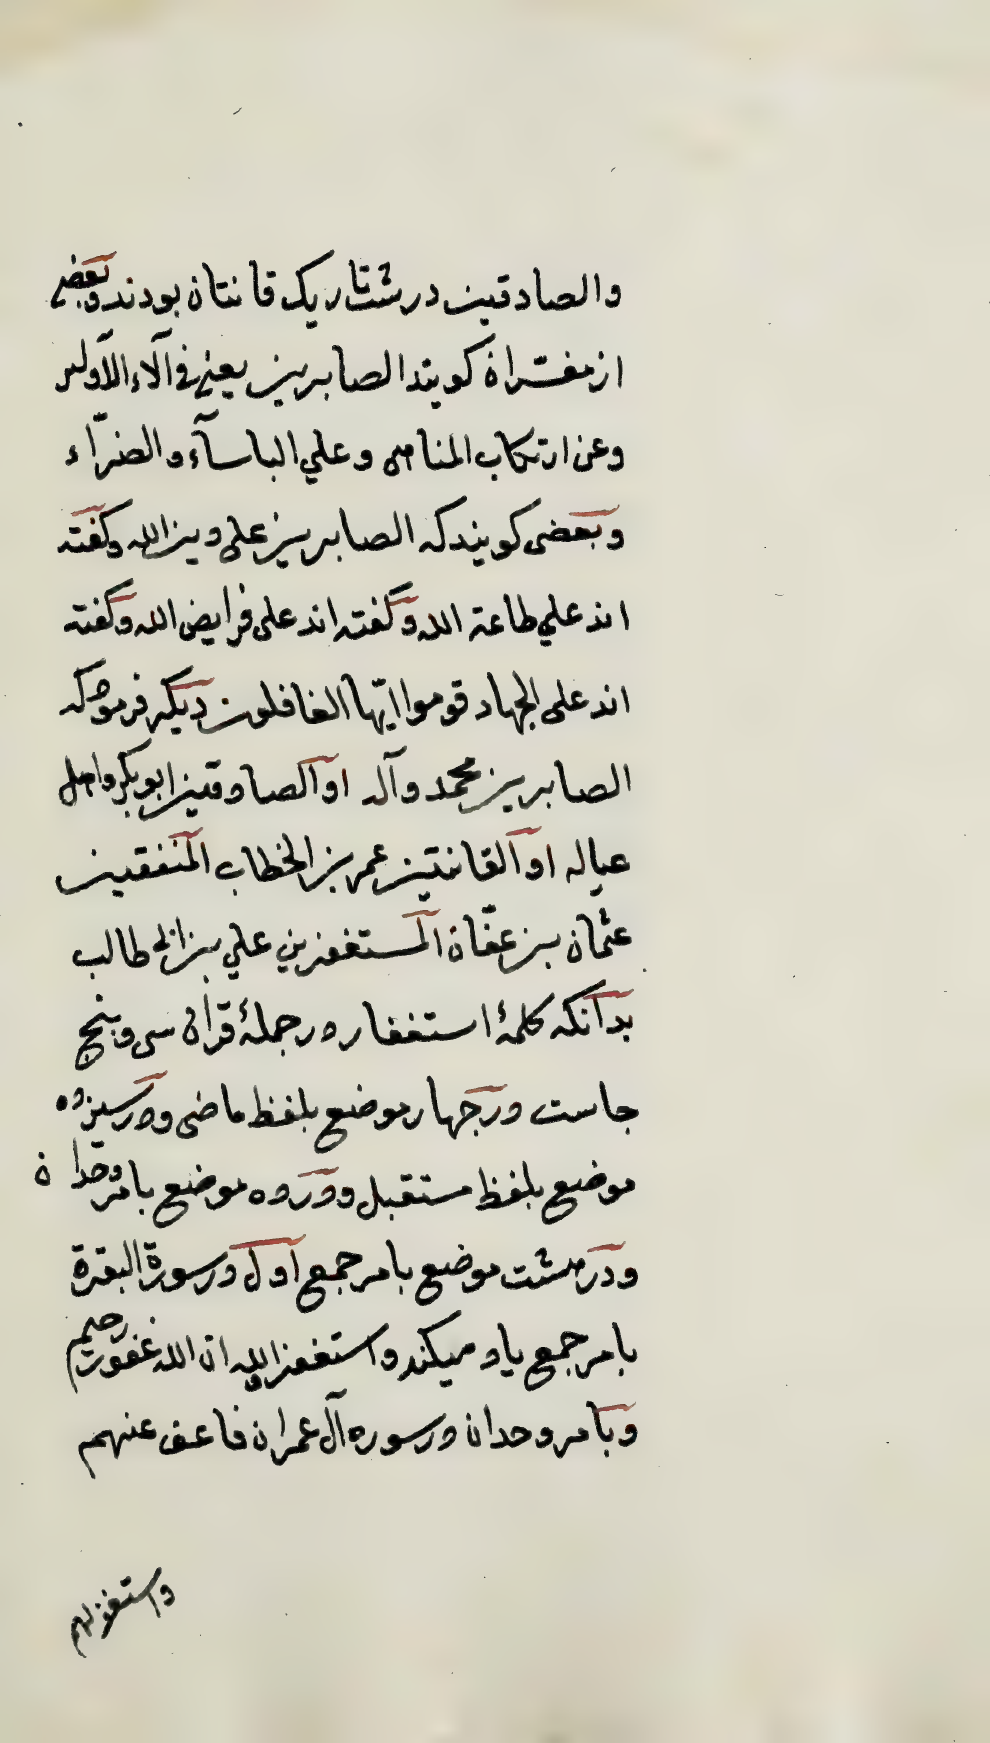 والصادقین در شتاریک قانتان بودند وبعضی
از مفسّران کویند الصابرین یعنی فی آلاء الاولیر
وعن ارتکاب المناهی وعلی الباسآء والضرّاء
وبعضی کویند که الصابرین علی دین الله وکفته
اند علی طاعة الله وکفته اند علی فرایض الله وکفته
اند علی الجهاد قوموا ایّها الغافلون دیکر فرموده که
الصابرین محمد وآله او الصادقین ابوبکر واهل
عیاله او القانتین عمر بن الخطاب المنفقین
عثمان بن عفّان المستغفرین علی بن ابی طالب
بدانکه کلمهٔ استغفار در جملهٔ قرآن سی وپنج
جاست در چهار موضع بلفظ ماضی ودر سیزده
موضع بلفظ مستقبل ودر ده موضع بامر وحدان
ودر هشت موضع بامر جمع اول در سورة البقرة
بامر جمع یاد میکند واستغفروا الله ان الله غفور رحیم
وبامر وحدان در سوره آل عمران فاعف عنهم
واستغفر لهم